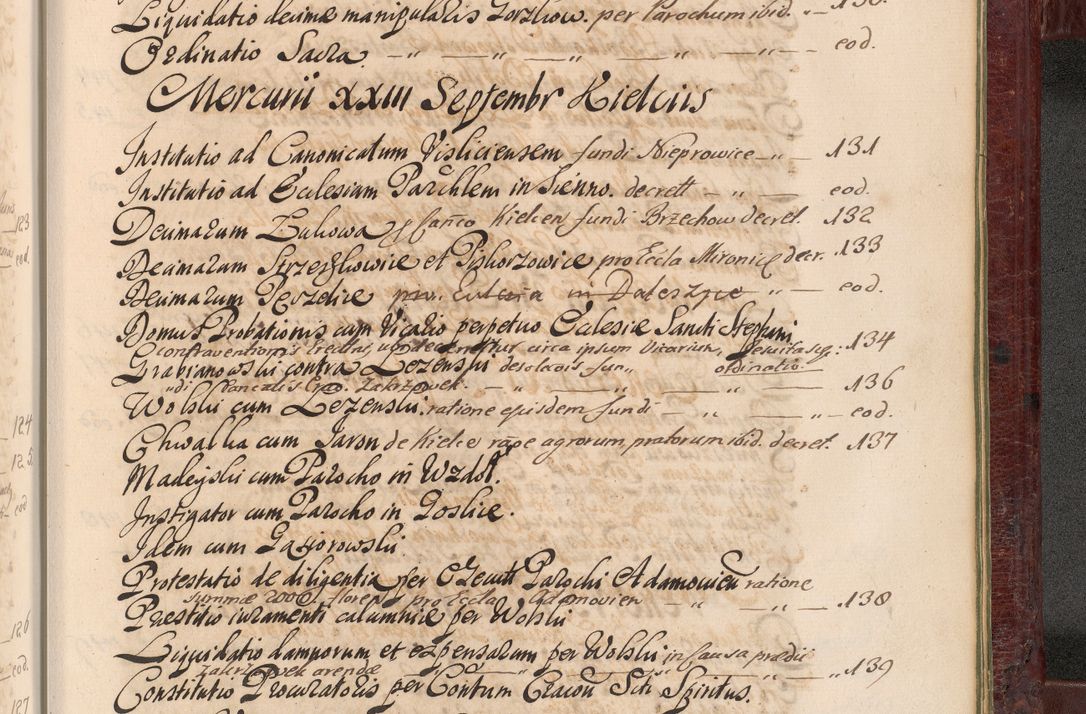 Liquidatio decimæ manipularis Gorzkow. per Parochum ibid. „— 130.
Ordinatio Sacra. —„— „ — „ — „ — eod.
Mercurii XXIII Septembr Kielciis
Institutio ad Canonicatum Visliciensem fundi Nieprowice —„— 131
Institutio ad Ecclesiam Parchlem in Sienno. decrett — „ — eod.
Decimarum Zukowa Kielcen fundi Brzechow decret. 132
Decimarum Strzeszkowice et Piskorzowice pro Eccla Mironice decr. 133
Decimarum Pęczelice pro. in Daleszyce „ — eod.
Domus Probationis cum Vicario perpetuo Ecclesiæ Sancti Stephani
circa ipsum Vicarium, Jesuitasq: 134
Grabianowski contra Lezenski desolaois fun„ ordinatio.
„di Zakrzowek. — „ — „ — 136
Wolski cum Lezenski. ratione ejusdem fundi — „ — „ — eod.
Chwalka cum Jaron de Kielce raōe agrorum, pratorum ibid. decret. 137
Madeyski cum Parocho in Wzdoł.
Instigator cum Parocho in Goslice.
Idem cum Gaworowski
Protestatio de diligentia per Parochi Adamowien ratione
summæ 2000 floren. pro Eccla Adamovien — „ — „ — 138
Præstitio iuramenti calumniæ per Wolski
Liquidatio damnorum et expensarum per Wolski in causa prædii
Zakrzowek arendæ — „ — „ — 139
Constitutio Procuratoris per Contum Cracou Scti Spiritus.
123
eod.
124
125.
eod
126
eod.
127